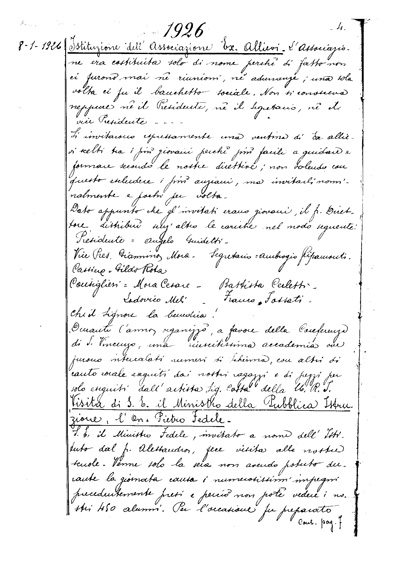 1926
4.
8-1-1926 Istituzione dell'Associazione Ex. Allievi. L'Associazio-
ne era costituita solo di nome perchè di fatto non
ci furono mai nè riunioni, nè adunanze; una sola
volta ci fu il banchetto sociale. Non si conosceva
neppure nè il Presidente, nè il Segretario, nè il
vice Presidente ----
Si invitarono espressamente una ventina di Ex allie-
vi scelti tra i più giovani perchè più facili a guidare e
formare secondo le nostre direttive; non volendo con
questo escludere i più anziani, ma invitarli nomi-
nalmente e pochi per volta.
Dato appunto che gl'invitati erano giovani, il p. Diret-
tore distribuì senz'altro le cariche nel modo seguente
Presidente = Angelo Guidetti -
Vice Pres. Giannino Mora - Segretario = Ambrogio Ripamonti.
Cassiere - Gildo Rota
Consiglieri = Mora Cesare - Battista Caletti -
Lodovico Meli - Franco Fossati -
Che il Signore la benedica!
Durante l'anno organizzò, a favore della Conferenza
di S. Vincenzo, una riuscitissima accademia ove
furono intercalati numeri di scherma, con altri di
canto corale eseguiti dai nostri ragazzi e di pezzi per
solo eseguiti dall'artista Sig. Costa della U. R. I.
Visita di S. E. il Ministro della Pubblica Istru-
zione, l'On. Pietro Fedele -
S. E. il Ministro Fedele, invitato a nome dell'Isti-
tuto dal p. Alessandro, fece visita alle nostre
scuole. Venne solo la sera non avendo potuto du-
rante la giornata causa i numerosissimi impegni
precedentemente presi e perciò non potè vedere i no-
stri 450 alunni. Per l'occasione fu preparato
Cont. pag. 7